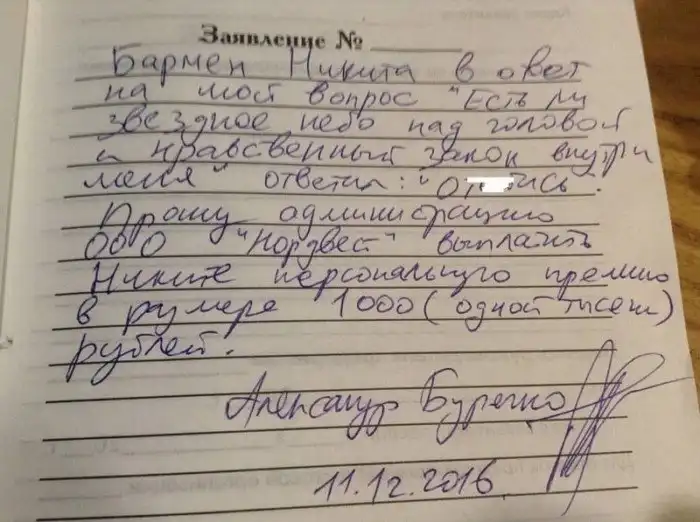 Заявление № ________
Бармен Никита в ответ
на мой вопрос "Есть ли
звездное небо над головой
и нравственный закон внутри
меня" ответил: "От ись".
Прошу администрацию
ООО "Нордвест" выплатить
Никите персональную премию
в размере 1000 (одной тысячи)
рублей.
Александр
11.12.2016